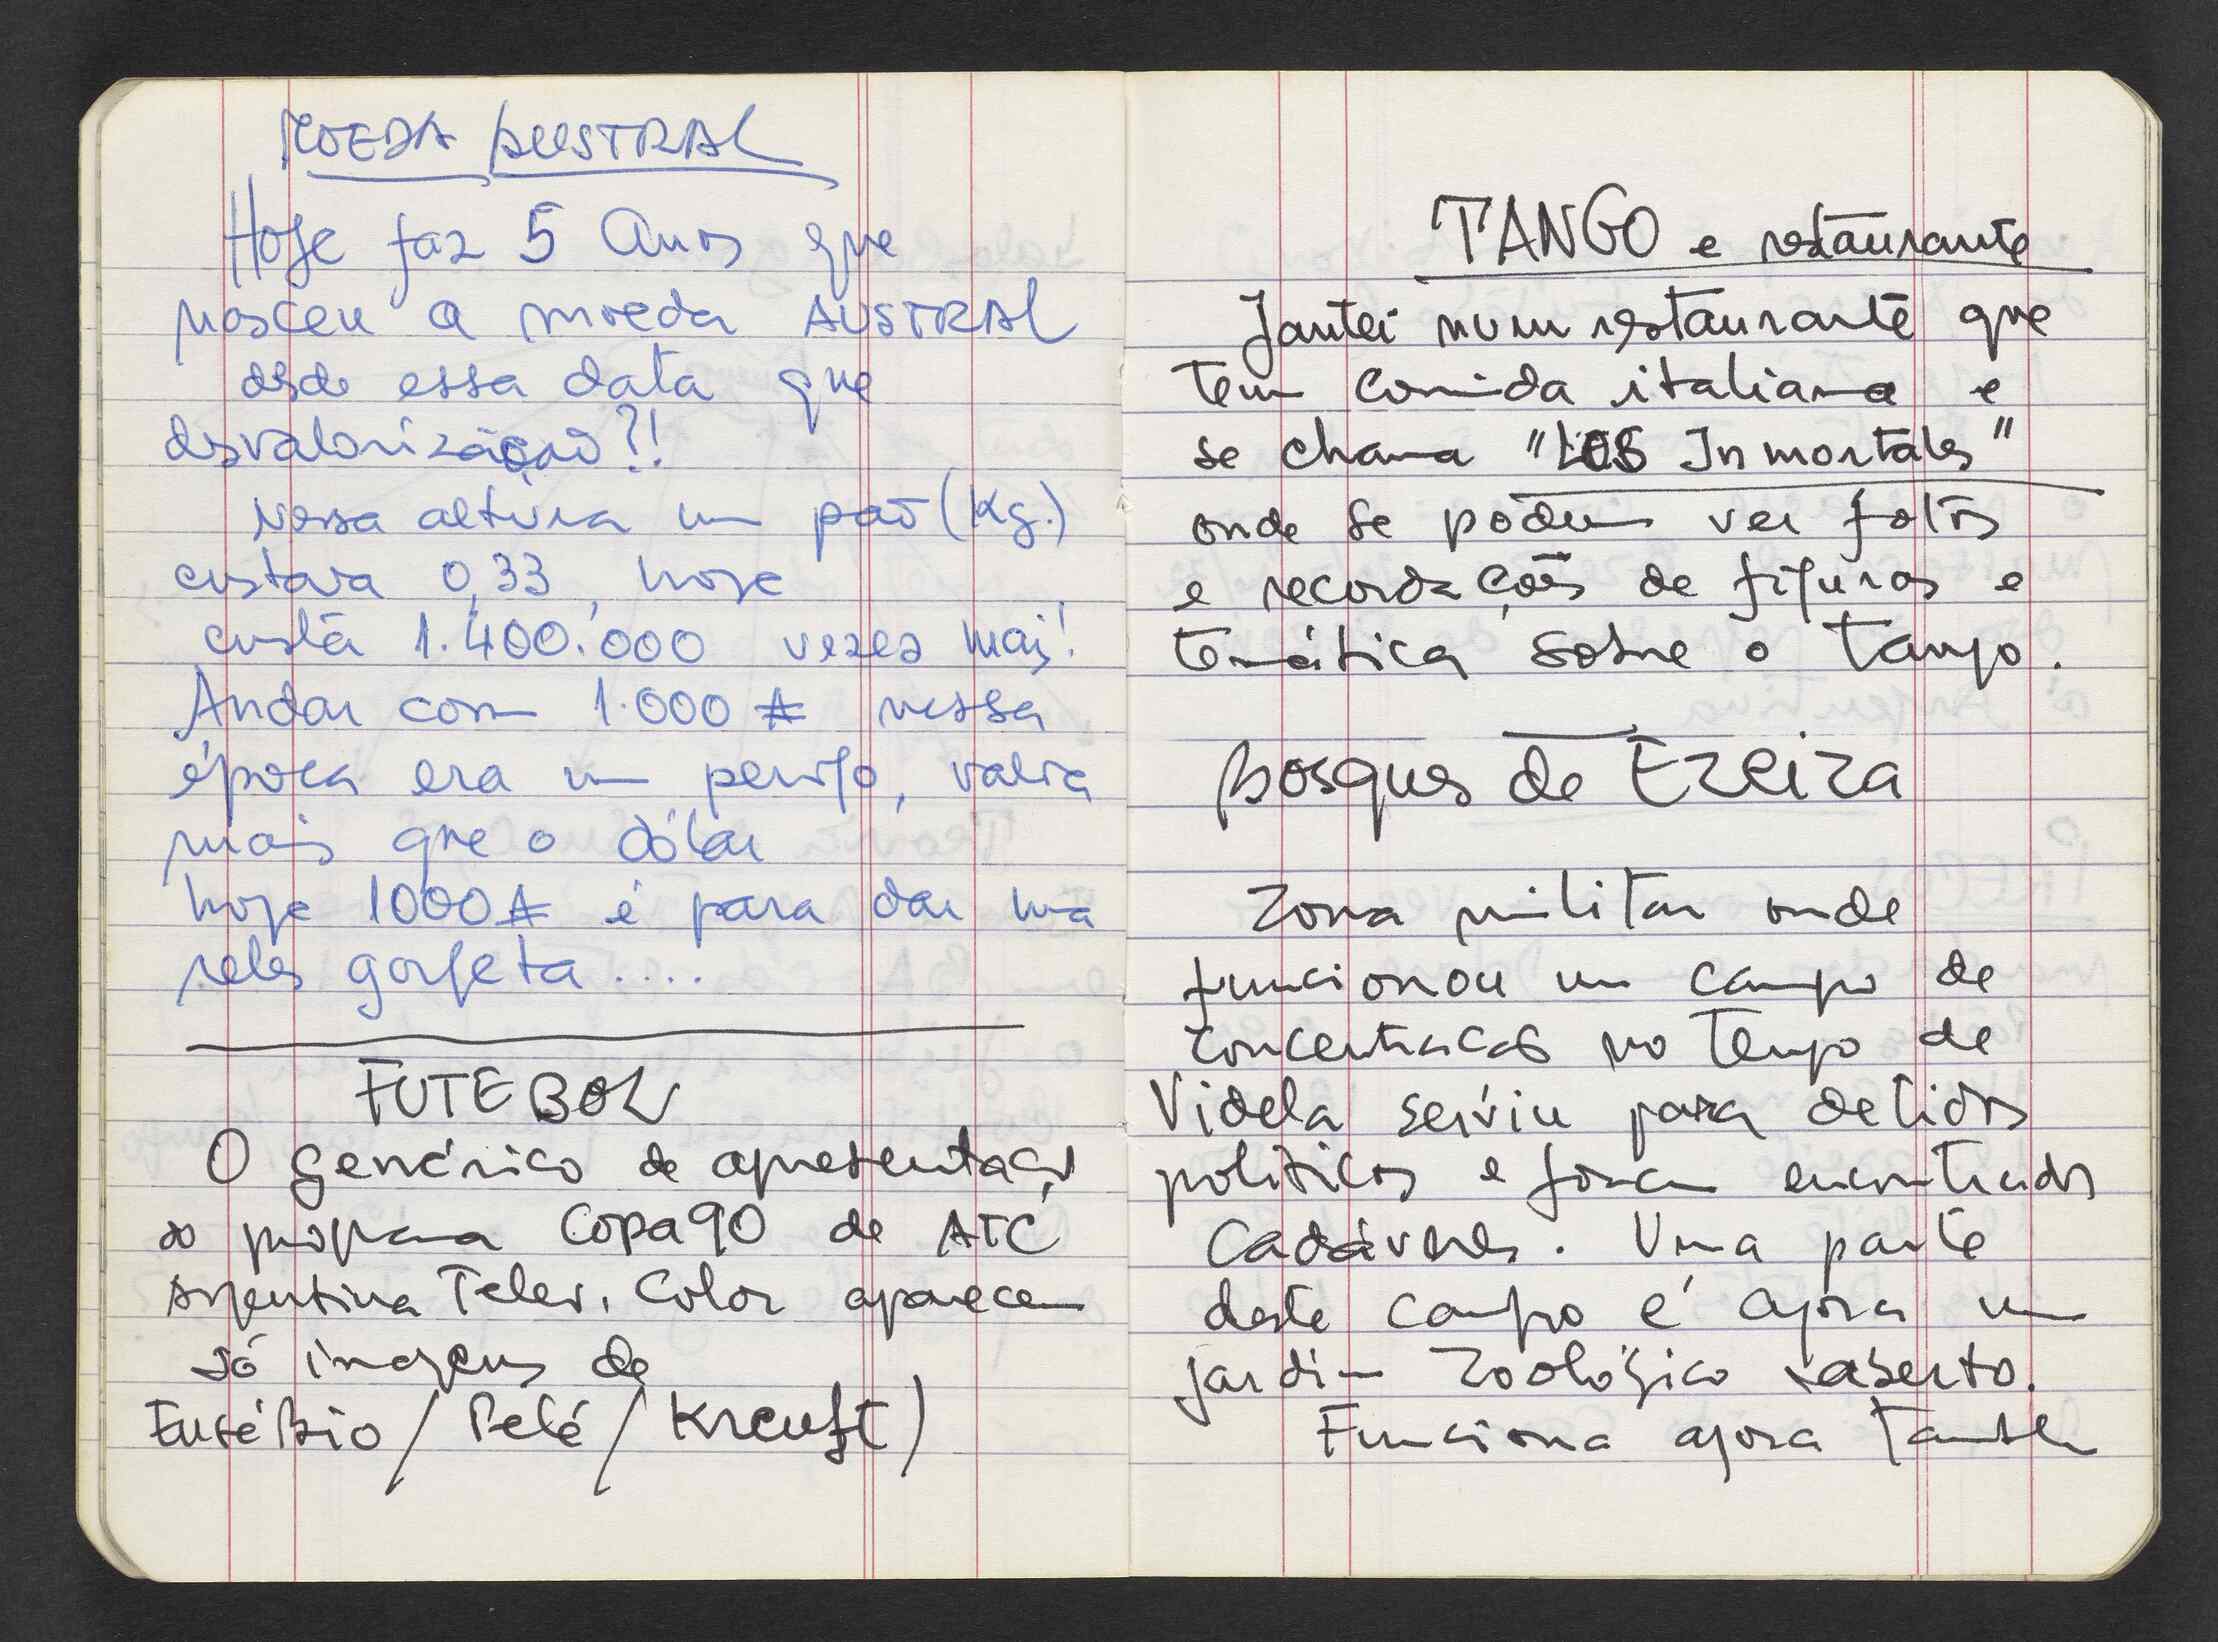 MOEDA AUSTRAL
Hoje faz 5 Anos que
nasceu a moeda AUSTRAL
desde essa data que
desvalorização?!
Nessa altura um pão (Kg.)
custava 0,33, hoje
custa 1.400.000 vezes mais!
Andar com 1.000 ₳ nessa
época era um perigo, valia
mais que o dólar
hoje 1000 ₳ é para dar uma
reles gorjeta....
FUTEBOL
O genérico de apresentação
do programa Copa 90 de ATC
Argentina Telev. Color aparecem
só imagens de
Eusébio / Pelé / Kreuft)
TANGO e restaurante
Jantei num restaurante que
tem comida italiana e
se chama "LOS Inmortales"
onde se podem ver fotos
e recordações de figuras e
temática sobre o tango.
Bosques de Ezeiza
Zona militar onde
funcionou um campo de
concentração no tempo de
Videla serviu para detidos
politicos e foram encontrados
cadáveres. Uma parte
deste campo é agora um
jardim zoológico aberto.
Funciona agora também